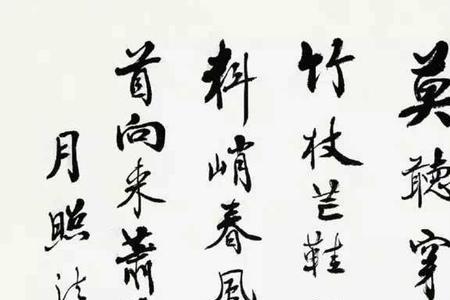 莫聽穿
竹杖芒鞋
料峭春風
首向来蕭
月照法